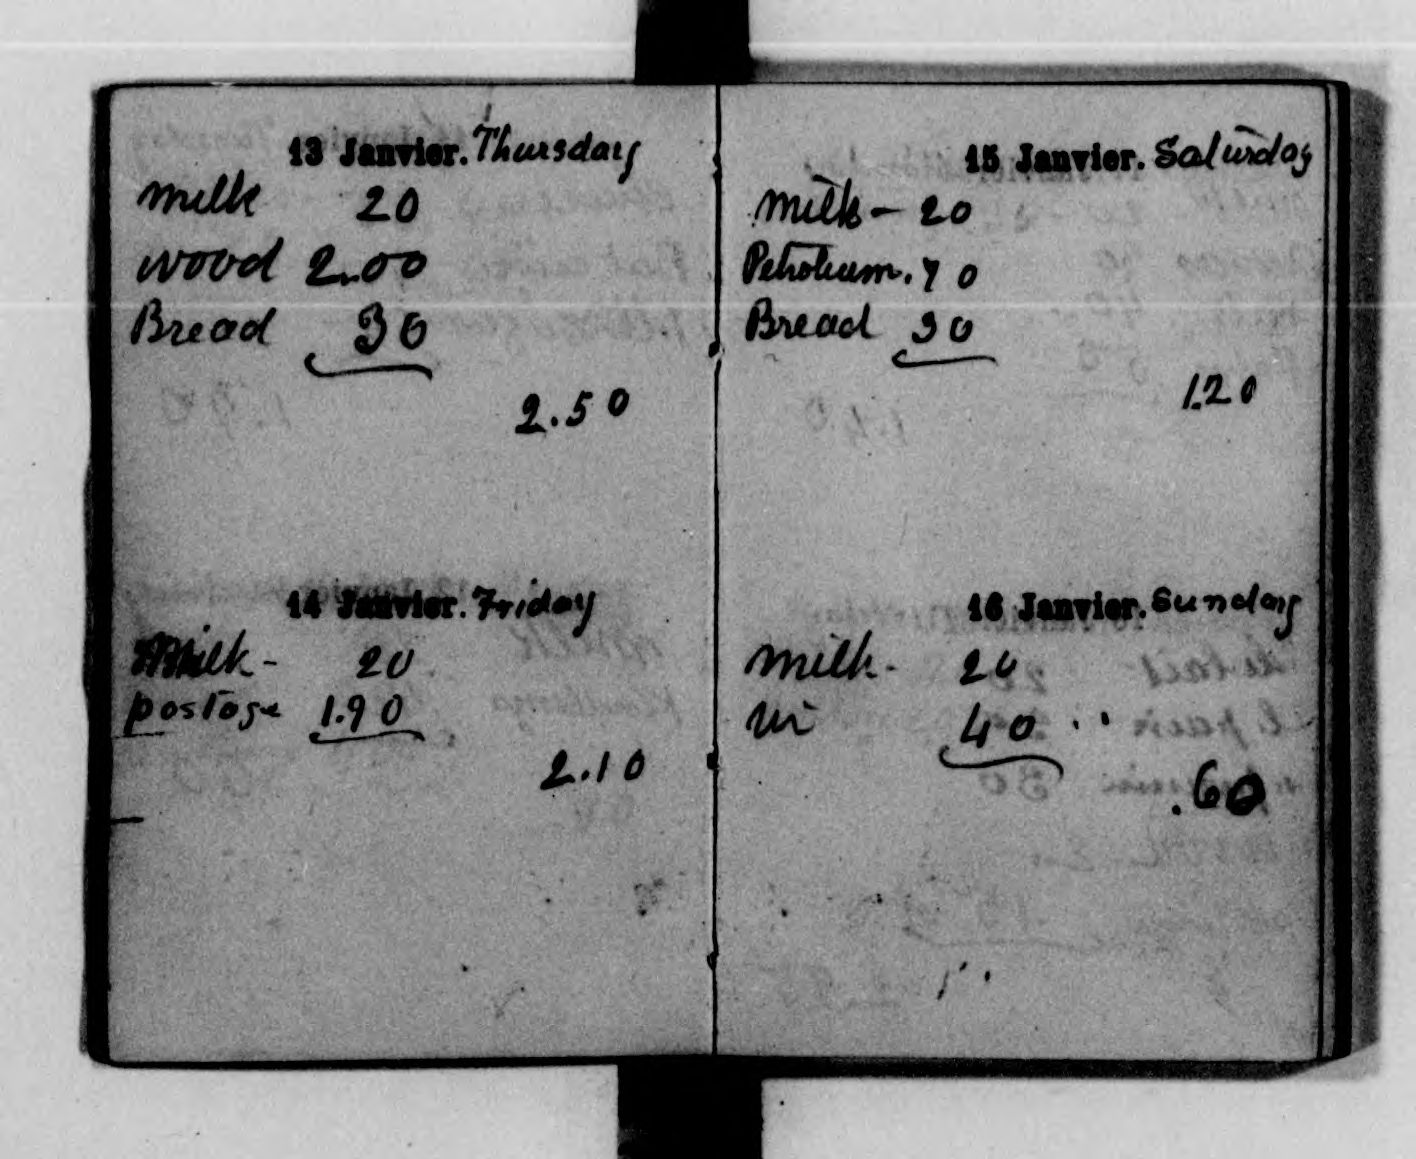 13 Janvier. Thursday
milk 20
wood 2.00
Bread 30
2.50
14 Janvier. Friday
Milk - 20
postage 1.90
2.10
15 Janvier. Saturday
milk - 20
Petroleum. 70
Bread 30
1.20
16 Janvier. Sunday
milk - 20
40
.60